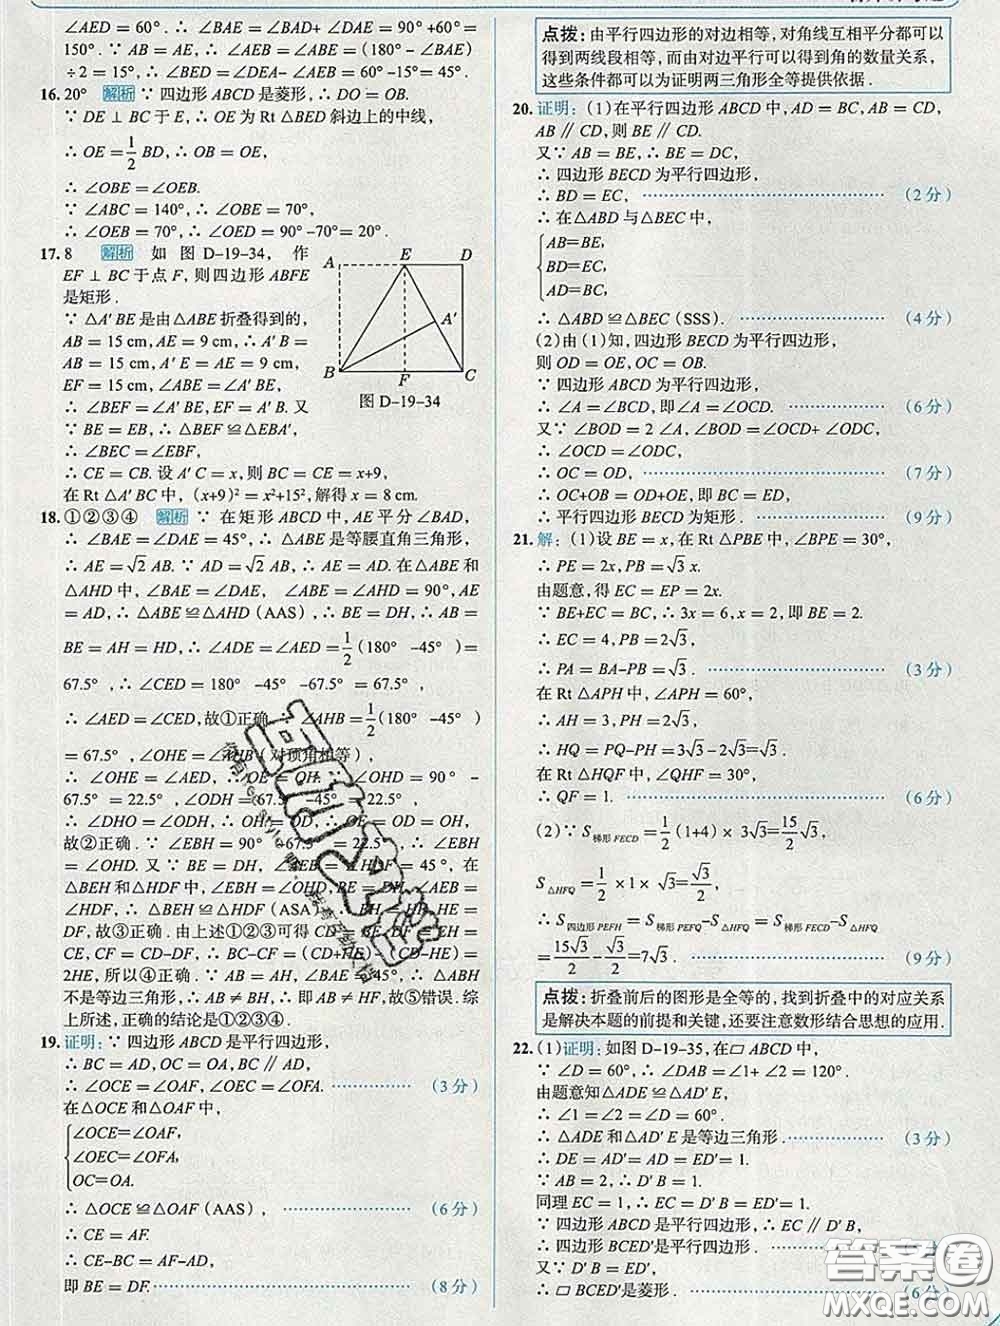 ∠AED = 60°. ∴ ∠BAE = ∠BAD+ ∠DAE = 90°+60° =
150°. ∵ AB = AE, ∴ ∠ABE = ∠AEB = (180° - ∠BAE)
÷2 = 15°, ∴ ∠BED = ∠DEA- ∠AEB = 60° -15°= 45°.
16. 20° 解析 ∵ 四边形 ABCD 是菱形, ∴ DO = OB.
∵ DE ⊥ BC 于 E, ∴ OE 为 Rt △BED 斜边上的中线,
∴ OE = 1/2 BD, ∴ OB = OE,
∴ ∠OBE = ∠OEB.
∵ ∠ABC = 140°, ∴ ∠OBE = 70°,
∴ ∠OEB = 70°, ∴ ∠OED = 90° -70°= 20°.
17. 8 解析 如图 D-19-34, 作
EF ⊥ BC 于点 F, 则四边形 ABFE
是矩形.
∵ △A′BE 是由△ABE 折叠得到的,
AB = 15 cm, AE = 9 cm, ∴ A′B =
15 cm, A′E = 9 cm, BF = 9 cm,
EF = 15 cm, ∠ABE = ∠A′BE,
∴ ∠BEF = ∠A′BE, EF = A′B. 又
∵ BE = EB, ∴ △BEF ≌ △EBA′,
∴ ∠BEC = ∠EBF,
∴ CE = CB. 设 A′C = x, 则 BC = CE = x+9,
在 Rt △A′BC 中, (x+9)² = x²+15², 解得 x = 8 cm.
A E D
A′
B F C
图 D-19-34
18. ①②③④ 解析 ∵ 在矩形 ABCD 中, AE 平分∠BAD,
∴ ∠BAE = ∠DAE = 45°, ∴ △ABE 是等腰直角三角形,
∴ AE = √2 AB. ∵ AD = √2 AB, ∴ AE = AD. 在△ABE 和
△AHD 中, ∠BAE = ∠DAE, ∠ABE = ∠AHD = 90°, AE
= AD, ∴ △ABE ≌ △AHD (AAS), ∴ BE = DH, ∴ AB =
BE = AH = HD, ∴ ∠ADE = ∠AED = 1/2 (180° -45°) =
67.5°, ∴ ∠CED = 180° -45° -67.5° = 67.5°,
∴ ∠AED = ∠CED, 故①正确. ∵ ∠AHB = 1/2 (180° -45°)
= 67.5°, ∠OHE = ∠AHB (对顶角相等),
∴ ∠OHE = ∠AED, ∴ OE = OH. ∵ ∠OHD = 90° -
67.5° = 22.5°, ∠ODH = 67.5° -45° = 22.5°,
∴ ∠DHO = ∠ODH, ∴ OH = OD, ∴ OE = OD = OH,
故②正确. ∵ ∠EBH = 90° -67.5° = 22.5°, ∴ ∠EBH
= ∠OHD. 又 ∵ BE = DH, ∠AEB = ∠HDF = 45°, 在
△BEH 和△HDF 中, ∠EBH = ∠OHD, BE = DH, ∠AEB =
∠HDF, ∴ △BEH ≌ △HDF (ASA), ∴ BH = HF, HE =
DF, 故③正确. 由上述①②③可得 CD = BE, DF = EH =
CE, CF = CD-DF, ∴ BC-CF = (CD+HE) - (CD-HE) =
2HE, 所以④正确. ∵ AB = AH, ∠BAE = 45°, ∴ △ABH
不是等边三角形, ∴ AB ≠ BH, ∴ 即 AB ≠ HF, 故⑤错误. 综
上所述, 正确的结论是①②③④.
19. 证明: ∵ 四边形 ABCD 是平行四边形,
∴ BC = AD, OC = OA, BC ∥ AD,
∴ ∠OCE = ∠OAF, ∠OEC = ∠OFA. (3 分)
在△OCE 和△OAF 中,
∠OCE=∠OAF,
∠OEC=∠OFA,
OC=OA.
∴ △OCE ≌ △OAF (AAS), (6 分)
∴ CE = AF.
∴ CE-BC = AF-AD,
即 BE = DF. (8 分)
点拨: 由平行四边形的对边相等, 对角线互相平分都可以
得到两线段相等, 而由对边平行可以得到角的数量关系,
这些条件都可以为证明两三角形全等提供依据.
20. 证明: (1) 在平行四边形 ABCD 中, AD = BC, AB = CD,
AB ∥ CD, 则 BE ∥ CD.
又∵ AB = BE, ∴ BE = DC,
∴ 四边形 BECD 为平行四边形,
∴ BD = EC, (2 分)
∴ 在△ABD 与△BEC 中,
AB=BE,
BD=EC,
AD=BC,
∴ △ABD ≌ △BEC (SSS). (4 分)
(2) 由 (1) 知, 四边形 BECD 为平行四边形,
则 OD = OE, OC = OB.
∵ 四边形 ABCD 为平行四边形,
∴ ∠A = ∠BCD, 即∠A = ∠OCD. (6 分)
又∵ ∠BOD = 2 ∠A, ∠BOD = ∠OCD+ ∠ODC,
∴ ∠OCD = ∠ODC,
∴ OC = OD, (7 分)
∴ OC+OB = OD+OE, 即 BC = ED,
∴ 平行四边形 BECD 为矩形. (9 分)
21. 解: (1) 设 BE = x, 在 Rt △PBE 中, ∠BPE = 30°,
∴ PE = 2x, PB = √3 x.
由题意, 得 EC = EP = 2x.
∵ BE+EC = BC, ∴ 3x = 6, x = 2, 即 BE = 2.
∴ EC = 4, PB = 2√3,
∴ PA = BA-PB = √3. (3 分)
在 Rt △APH 中, ∠APH = 60°,
∴ AH = 3, PH = 2√3,
∴ HQ = PQ-PH = 3√3 -2√3=√3.
在 Rt △HQF 中, ∠QHF = 30°,
∴ QF = 1. (6 分)
(2) ∵ S梯形FECD = 1/2 (1+4) × 3√3 = 15/2 √3,
S△HFQ = 1/2 ×1 ×√3 = √3/2,
∴ S四边形PEFH = S梯形PEFQ - S△HFQ = S梯形FECD - S△HFQ
= 15√3/2 - √3/2 = 7√3. (9 分)
点拨: 折叠前后的图形是全等的, 找到折叠中的对应关系
是解决本题的前提和关键, 还要注意数形结合思想的应用.
22. (1) 证明: 如图 D-19-35, 在 ▱ ABCD 中,
∵ ∠D = 60°, ∴ ∠DAB = ∠1+ ∠2 = 120°.
由题意知△ADE ≌ △AD′E,
∴ ∠1 = ∠2 = ∠D = 60°.
∴ △ADE 和△AD′E 是等边三角形. (3 分)
∴ DE = AD′ = AD = ED′= 1.
∵ AB = 2, ∴ D′B = 1.
同理 EC = 1, ∴ EC = D′B = ED′= 1.
∵ 四边形 ABCD 是平行四边形, ∴ EC ∥ D′B,
∴ 四边形 BCED′是平行四边形.
又∵ D′B = ED′,
∴ ▱ BCED′是菱形. (6 分)
答案卷
MXQE.COM